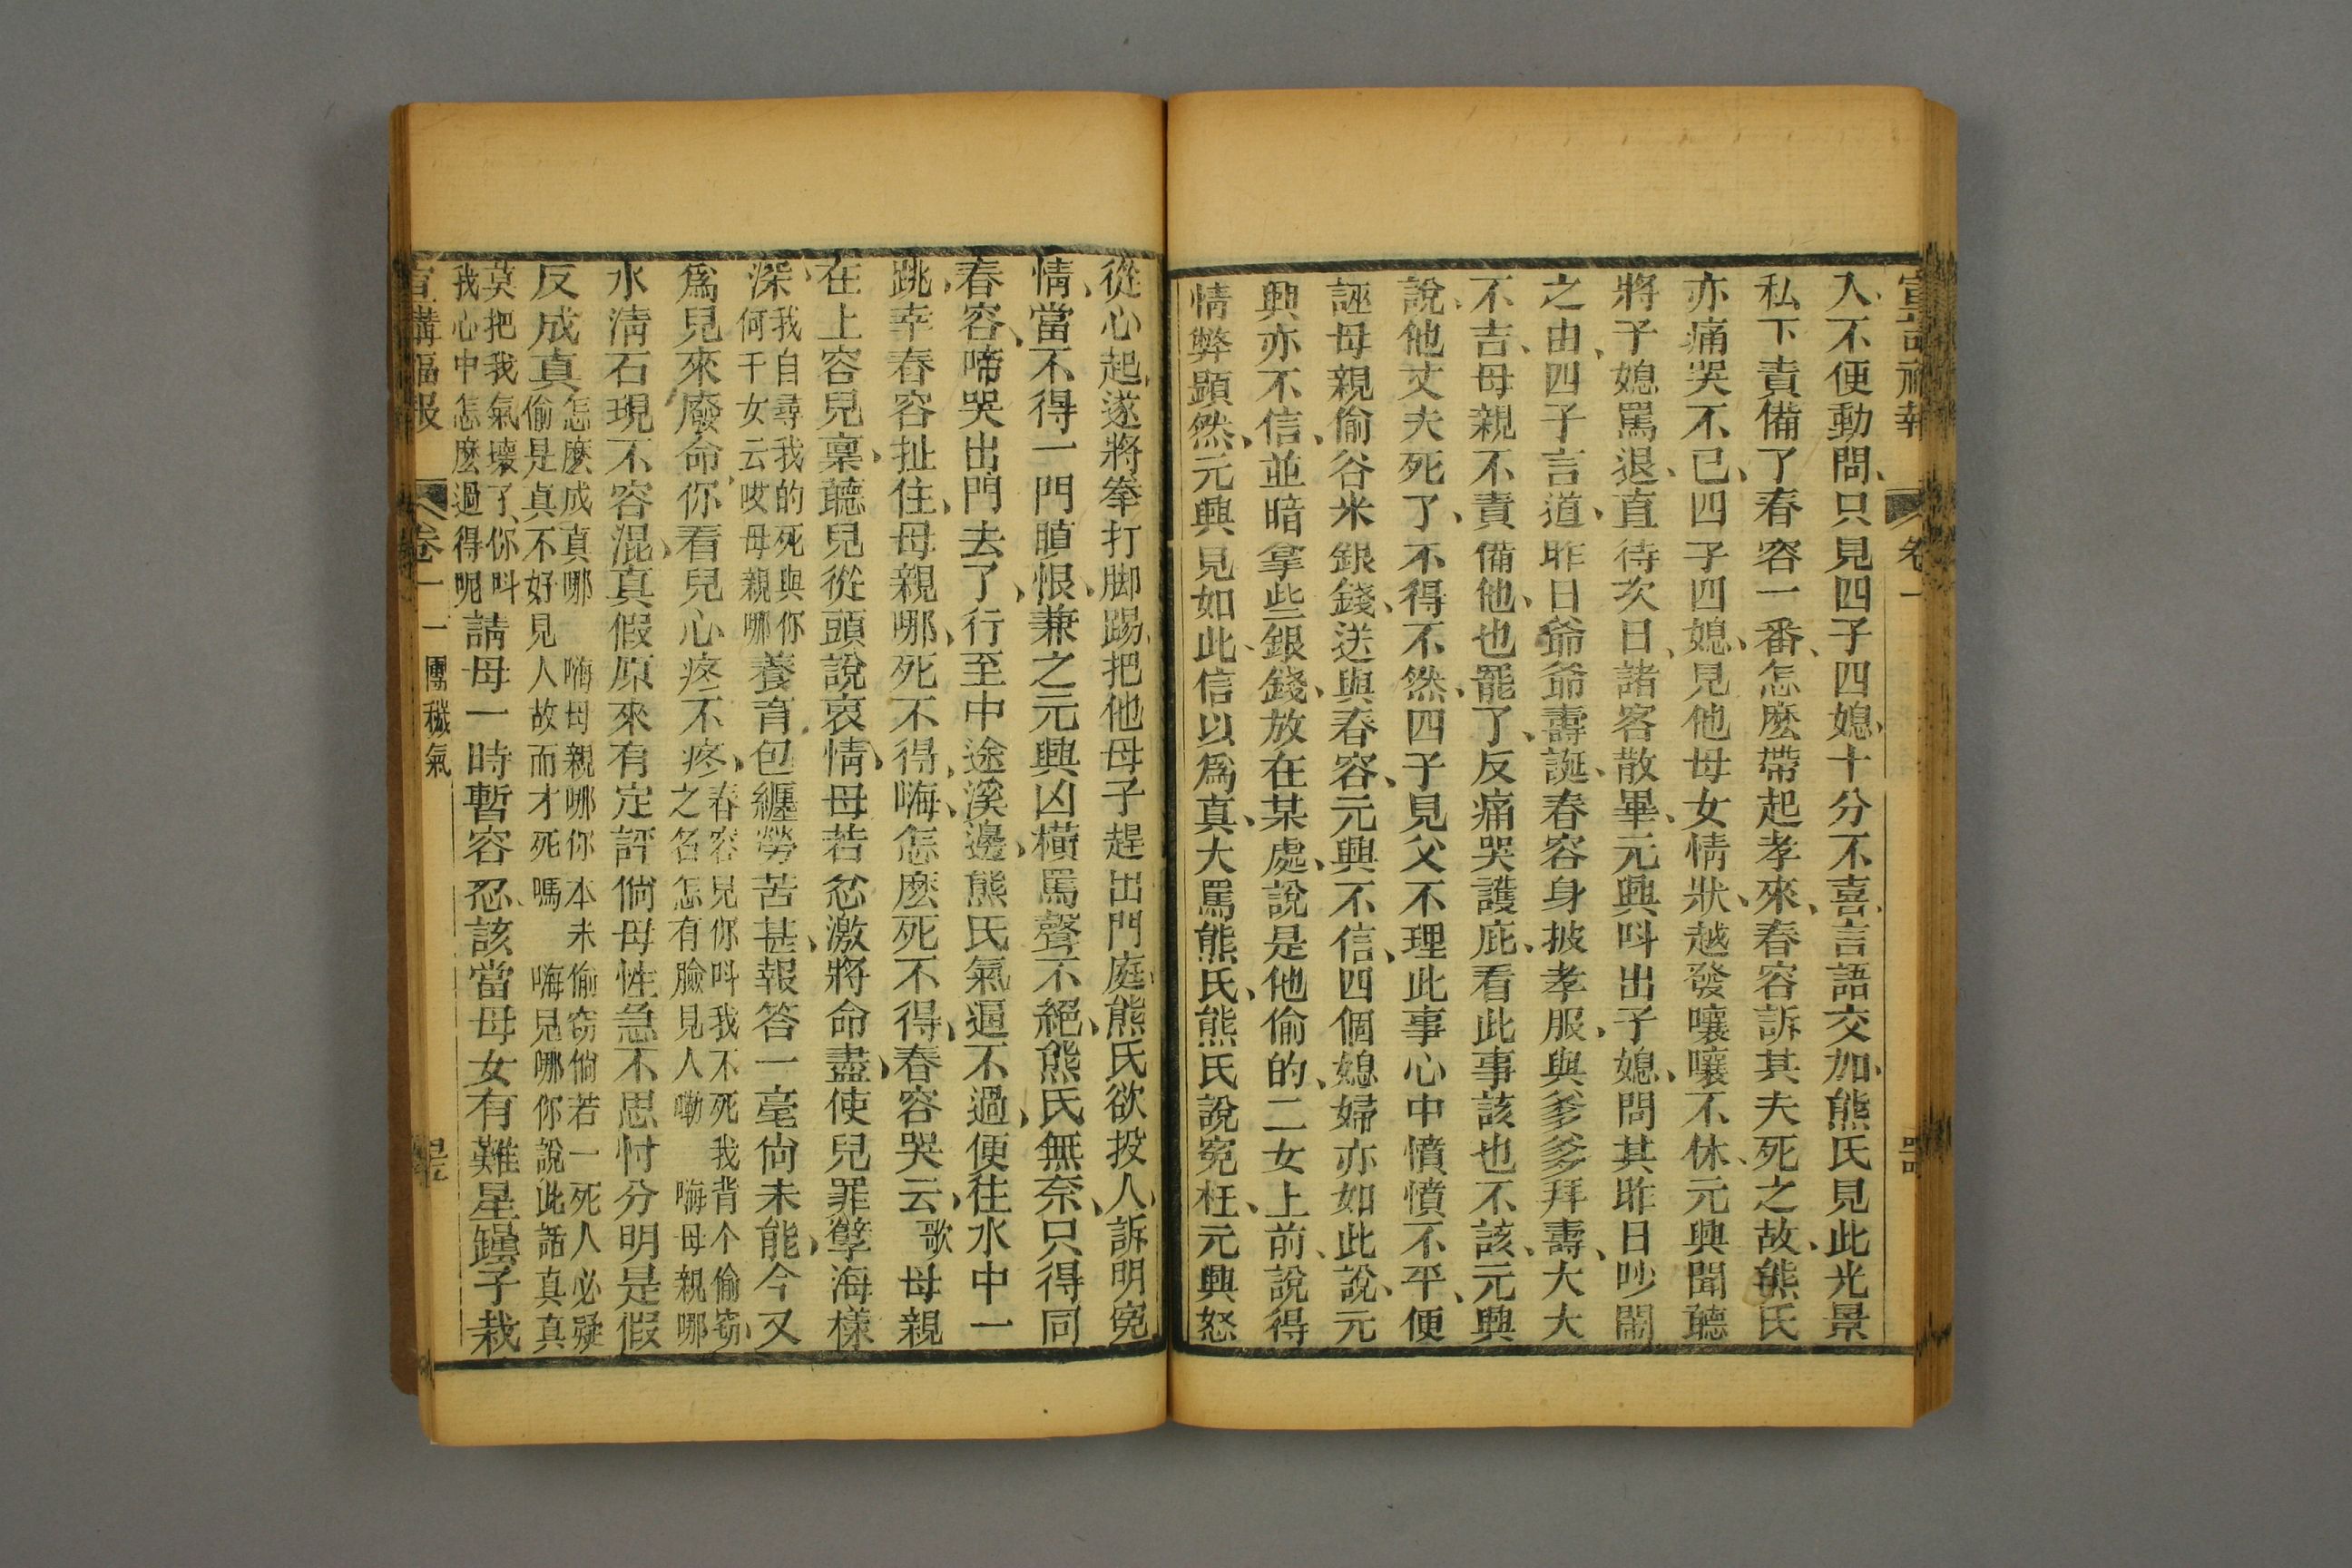 宣講福報 卷一
入、不便動問、只見四子四媳、十分不喜、言語交加、熊氏見此光景
私下責備了春容一番、怎麽帶起孝來、春容訴其夫死之故、熊氏
亦痛哭不已、四子四媳、見他母女情狀、越發嚷嚷不休、元興聞聽
將子媳罵退、直待次日、諸客散畢、元興呌出子媳、問其昨日吵鬧
之由、四子言道、昨日爺爺壽誕、春容身披孝服、與爹爹拜壽、大大
不吉、母親不責備他、也罷了、反痛哭護庇、看此事該也不該、元興
說、他丈夫死了、不得不然、四子見父不理此事心中憤憤不平、便
誣母親偷谷米銀錢、送與春容、元興不信、四個媳婦亦如此說、元
興亦不信、並暗拿些銀錢、放在某處、說是他偷的、二女上前、說得
情弊顕然、元興見如此、信以爲真、大罵熊氏、熊氏說寃枉、元興怒
從心起、遂將拳打脚踢、把他母子趕出門庭、熊氏欲投人、訴明寃
情、當不得一門瞋恨、兼之元興凶橫、罵聲不絕、熊氏無奈、只得同
春容、啼哭出門去了、行至中途溪邊、熊氏氣逼不過、便往水中一
跳、幸春容扯住、母親哪、死不得、嗨、怎麽死不得、春容哭云、歌 母親
在上容兒稟、聽兒從頭說衷情、母若忿激將命盡、使兒罪孽海樣
深、我自尋我的死與你何干女云哎母親哪養育包纏勞苦甚、報答一毫尙未能、今又
爲兒來廢命、你看兒心疼不疼、春容兒你呌我不死我背个偷窃、之名怎有臉見人嘞 嗨母親哪
水淸石現不容混、真假原來有定評、倘母性急不思忖、分明是假
反成真怎麽成真哪 嗨母親哪你本未偷窃倘若一死人必疑偷是真不好見人故而才死嗎 嗨兒哪你說此話真真
莫把我氣壞了、你呌我心中怎麽過得呢請母一時暫容忍、該當母女有難星、鏝子栽
宣講福報 卷一 一團穢氣